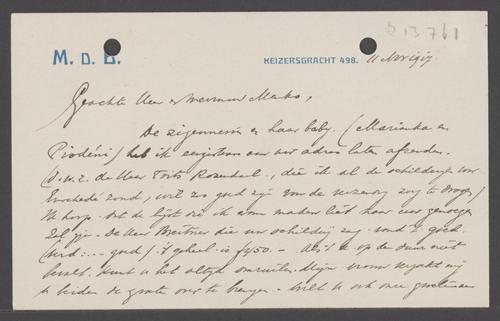 b 13761
M. D. B.
KEIZERSGRACHT 498. 11 Nov 1917.
Geachte Heer en Mevrouw Menko,
De zigeunerin en haar baby. (Marianka en
Pirodéni) heb ik eergisteren aan uw adres laten afzenden.
de Heer Frits Rozendaal, die ik al de schilderijen voor
Enschedé zond, wil zoo goed zijn voor de verzending zorg te dragen)
Ik hoop dat de lijst die ik er om maken liet naar uw genoegen
zal zijn. De Heer Breitner die uw schilderij zag vond 't goed.
(erd: -- goed) 't geheel is f 450.— Als 't u op den duur niet
bevalt kunt u het altijd omruilen. Mijn vrouw verzoekt mij
u beiden de groete over te brengen. Wilt u ook onze groeten aan